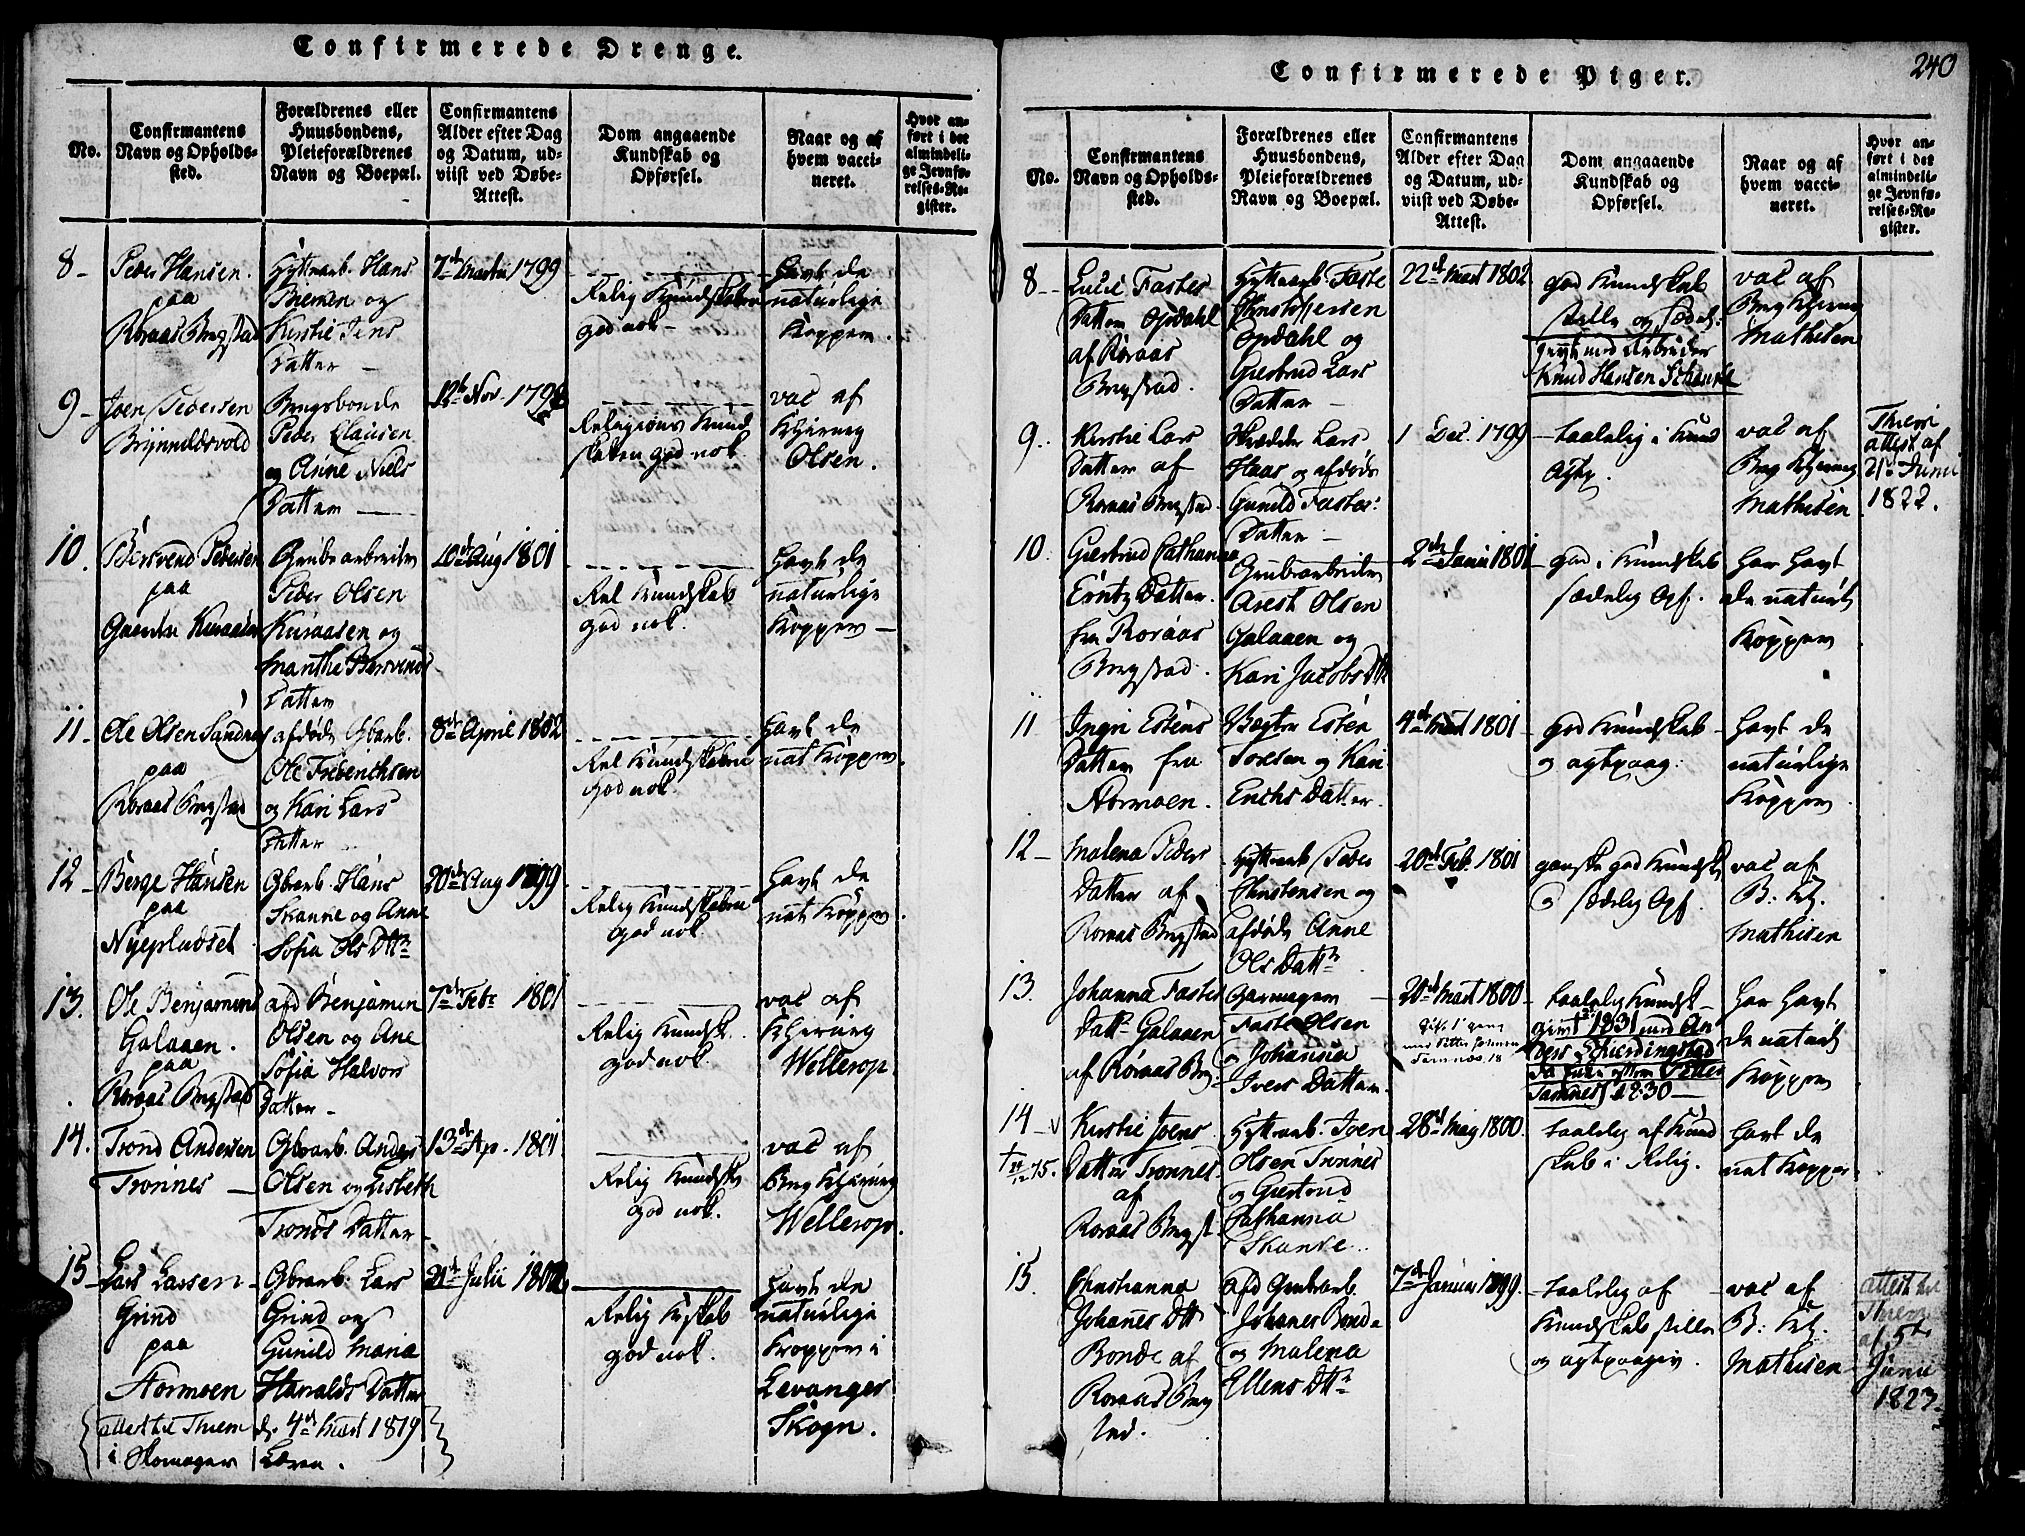 Confirmerede Drenge.
No.
Confirmantens
Navn og Opholds-
sted.
Forældrenes eller
Huusbondens,
Pleieforældrenes
Navn og Boepæl.
Confirmantens
Alder efter Dag
og Datum, ud-
viist ved Døbe-
Attest.
Dom angaaende
Kundskab og
Opførsel.
Naar og af
hvem vacci-
neret.
Hvor an-
ført i det
almindeli-
ge Jevnfø-
relses-Re-
gister.
8
Peder Hansen
paa
Roraas Bergstad
Hyttearb. Hans
Bremen og
Kirstie Jens
Datter
7de Martii 1799
Relig Kundskaben
god nok
Havt de
naturlige
Kopper
9
Joen Pedersen
Brynnildsvold
Bergsbonde
Peder Clausen
og Anne Niels
Datter
12te Nov. 1798
Religions Kund
skaben god nok
vac af
Khirurg
Olsen.
10.
Bersvend Pedersen
paa
Kuraasen
Grubearbeider
Peder Olsen
Kuraasen og
Marithe Bersvends
Datter
10de Aug 1801
Rel Kundskab
god nok.
Havt de
naturlige
Kopper
11
Ole Olsen Sandnes
paa
Roraas Bergstad
afdøde Gbarb.
Ole Frederichsen
og Kari Lars
Datter
8de April 1802
Rel Kundskaben
god nok.
Havt de
nat Kopper.
12
Berge Hansen
paa
Nyepladset
Gbrarb. Hans
Skanke og Anne
Sofia Ols Dttr
20de Aug 1799
Relig Kundskaben
god nok
Havt de
nat Kopper
13.
Ole Benjamins
Galaaen.
paa
Roraas Bergstad
afd Benjamin
Olsen og Ane
Sofia Halvors
Datter
7de Febr 1801
Relig Kundsk.
god nok.
vac af
Khirurg
Wellerop
14.
Trond Andersen
Tronnes
Gbrarb. Anders
Olsen og Lisbeth
Tronds Datter
13de Ap. 1801
Relig Kundsk
god nok.
vac af
Berg Khirurg
Wellerop.
15
Lars Larsen
Grind
paa
Hormoen
Gbrarb: Lars
Grind og
Gunild Maria
Haralds Datter
21de Julii 1802
Relig Kskab
god nok.
Havt de
naturlige
Kopper i
Levanger
Skogn.
attest til Thiem d. 4de Mart 1819
i Skomager Læren.
240
Confirmerede Piger.
No.
Confirmantens
Navn og Opholds-
sted.
Forældrenes eller
Huusbondens,
Pleieforældrenes
Navn og Boepæl.
Confirmantens
Alder efter Dag
og Datum, ud-
viist ved Døbe-
Attest.
Dom angaaende
Kundskab og
Opførsel.
Naar og af
hvem vacci-
neret.
Hvor an-
ført i det
almindeli-
ge Jevnfø-
relses-Re-
gister.
8
Lucie Fastes
Datter Opdahl
af Røraas
Bergstad.
Hyttearb. Faste
Christophersen
Opdahl og
Giertrud Lars
Datter
22de Mart 1802
god Kundskab
stille og sædel:
givt med Arbeider
Knud Hansen Schanke
vac af
Berg Khirurg
Mathisen
9.
Kirstie Lars
Datter af
Roraas Bergstad.
Skrædder Lars
Haas og afdøde
Gunild Fastes:
Datter
1 Dec. 1799
taalelig i Kund
Agtp.
vac af
Berg Khirurg
Mathisen
attest af
21de Junii
1822.
10.
Giertrud Cathanna
Datter.
fra Roraas
Bergstad.
Grubearbeider
Arest Olsen
Galaaen og
Kari Jacobs Dttr
2den Janii 1801
god i Kundskab
sædelig Opf.
Har havt
de naturl
Kopper
11
Ingri Estens
Datter fra
Hormoen.
Vægter Esten
Toresen og Kari
Erichs Datter.
4de Mart 1801
god Kundskab
og agtpaag.
Havt de
naturlige
Kopper
12
Malena Peders
Datter af
Roraas Bergstad
Hyttearb Peder
Christensen og
afdøde Anne
Ols Dattr
20de Feb. 1801
ganske god Kundsk
sædelig Opf.
vac af
B: Kh.
Mathisen
13.
Johanna Fastes
Dattr Galaaen
af Røraas Berg
Garmager
Faste Olsen
og Johanna
Ivers Datter.
20de Mart 1800
taalelig Kundsk
givt 1831 med An
1830
Har havt
de naturl
Kopper
14
Kirstie Joens
Datter Tronnes
af
Roraas Bergst.
Hyttearb. Joen
Olsen Tronnes
og Giertrud
Cathanna
Skanke.
28de Maj 1800.
taalelig af Kund
skab i Relig.
Havt de
nat Kopper
15.
Christianna
Johanes Dttr
Bonde af
Roraas Berg
sted.
afd Grubearb.
Johanes Bonde
og Malena
Ellens Dttr
7de Januar 1799.
taalelig af
Kundskab stille
og agtpaagiv.
vac af
B: Kh.
Mathisen
attest til
af 5te
Junii
1823